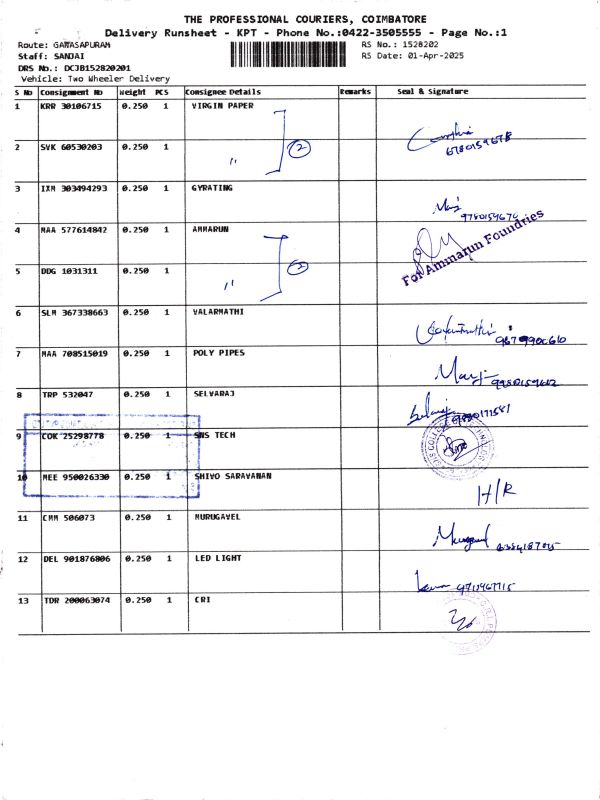 THE PROFESSIONAL COURIERS, COIMBATORE
Delivery Runsheet - KPT - Phone No.:0422-3505555 - Page No.:1
Route: GANASAPURAM
RS No.: 1528202
Staff: SANJAI
RS Date: 01-Apr-2025
DRS No.: DCJB152820201
Vehicle: Two Wheeler Delivery
S No Consignment No Weight PCS Consignee Details Remarks Seal & Signature
1 KRR 30106715 0.250 1 VIRGIN PAPER
2 SVK 60530203 0.250 1 " 2
3 IXM 303494293 0.250 1 GYRATING
4 MAA 577614842 0.250 1 AMMARUN
For Ammarun Foundries
5 DDG 1031311 0.250 1 " 2
6 SLM 367338663 0.250 1 VALARMATHI
7 MAA 708515019 0.250 1 POLY PIPES
8 TRP 532047 0.250 1 SELVARAJ
9 COK 25298778 0.250 1 SNS TECH
10 MEE 950026330 0.250 1 SHIVO SARAVANAN H/R
11 CMM 506073 0.250 1 MURUGAVEL
12 DEL 901876806 0.250 1 LED LIGHT
13 TDR 200063074 0.250 1 CRI